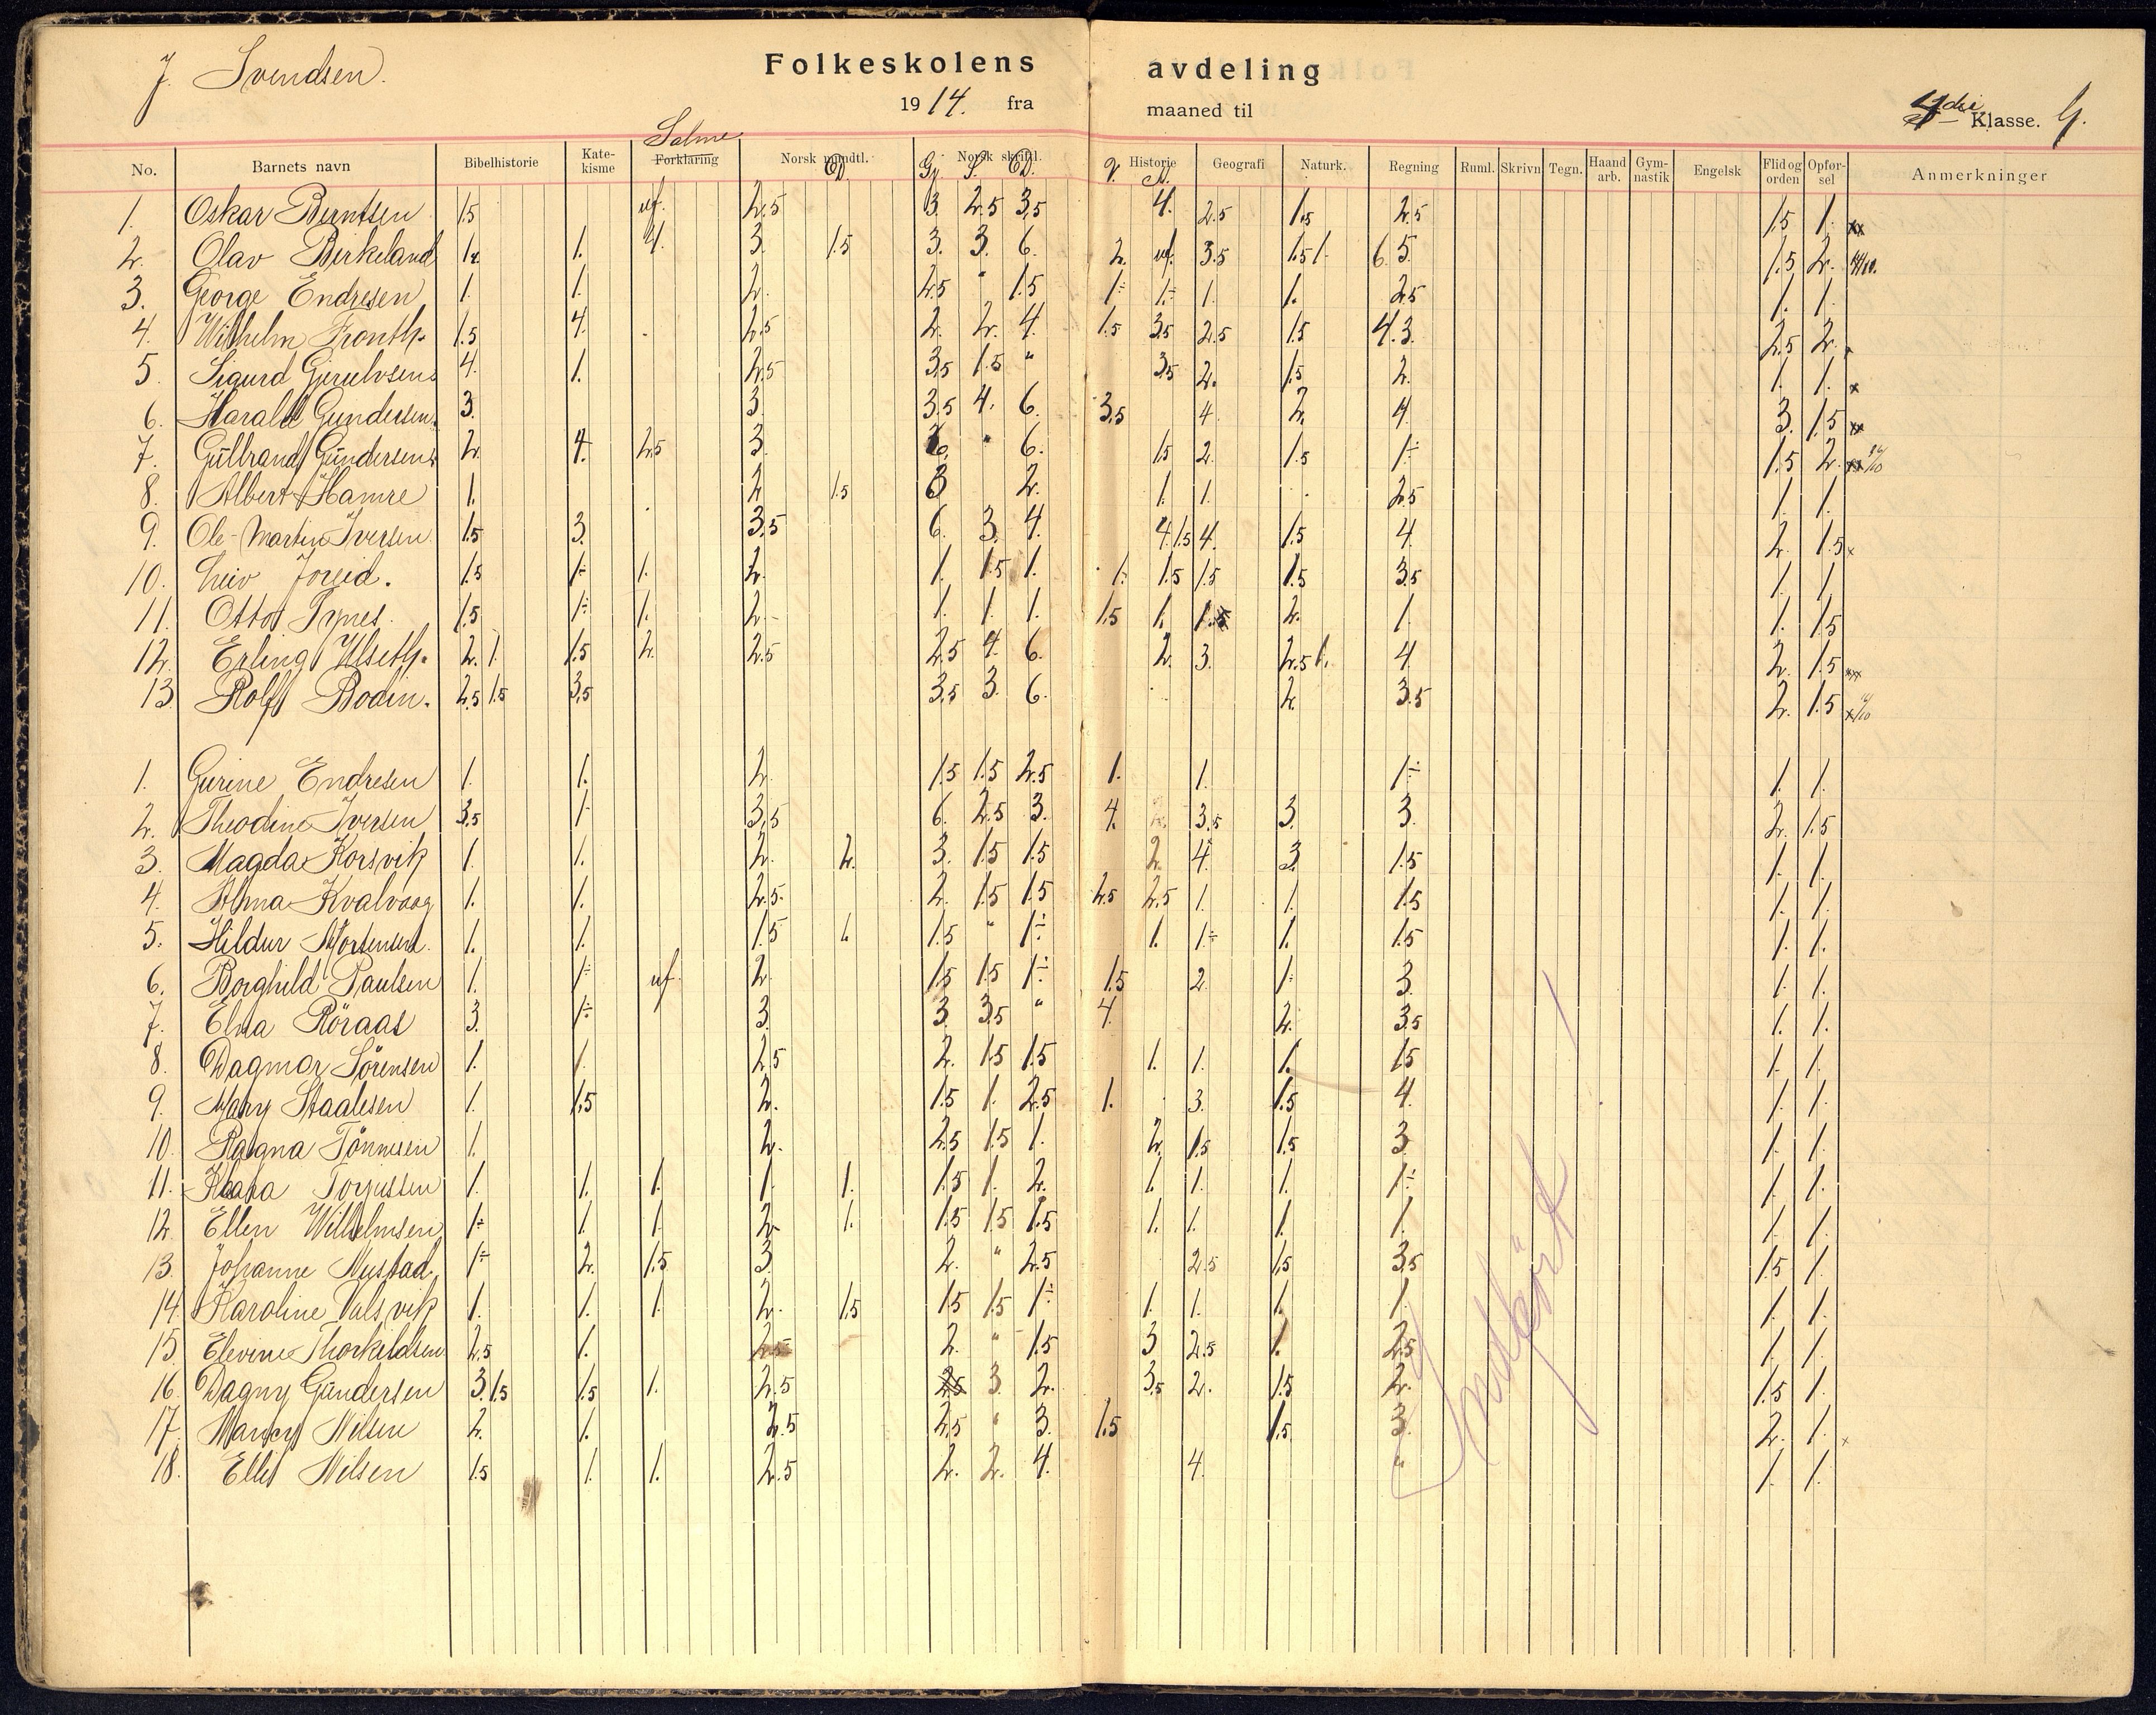 J. Svendsen.
Folkeskolens avdeling
1914. fra maaned til 4die Klasse. G.
No. Barnets navn Bibelhistorie Kate-kisme Salme Forklaring Norsk mundtl. Norsk skriftl. Historie Geografi Naturk. Regning Ruml. Skrivn. Tegn. Haand arb. Gym-nastik Engelsk Flid og orden Opfør-sel Anmerkninger
1. Oskar Berntsen 1.5 uf. 2.5 3. 2.5 3.5 4. 2.5 1.5 2.5 1.5 1. xx
2. Olav Birkeland 1. 4. 3. 1.5 3. 3. 6. 2. uf. 3.5 1.5 1. 6. 5. 1.5 2.
3. George Endresen 1. 1. 2. 2.5 " 1.5 1÷ 1÷ 1. 1. 2.5 1. 1.
4. Wilhelm 1.5 4. 2.5 2. 2. 4. 1.5 3.5 2.5 1.5 4. 3. 2.5 2.
5. Sigurd 4. 1. 2.5 3.5 1.5 " 3.5 2. 1.5 2. 1. 1. x
6. Harald Gundersen 3. 3. 3.5 4. 6. 3.5 4. 2. 4. 3. 1.5 xx
7. Gulbrand Gundersen 2. 4. 2.5 3. " 6. 1.5 2. 1.5 1÷ 1.5 2.
8. Albert Hamre 1. 2. 1.5 3 2. 1. 1. 2.5 1. 1.
9. Ole-Martin Iversen 1.5 3. 3.5 6. 3. 4. 4. 1.5 4. 1.5 4. 2. 1.5 x
10. Leiv Joreid. 1.5 1÷ 1. 2. 1. 1.5 1. 1. 1.5 1.5 1.5 3.5 1. 1.
11. Otto Tynes. 1.5 1÷ 1. 2. 1. 1. 1. 1.5 1. 1. 2. 1. 1. 1.5
12. Erling Ulseth. 2. 1. 1.5 2. 2.5 2.5 4. 6. 2. 3. 2.5 1. 4. 2. 1.5 xxx
13. Rolf Bodin. 2.5 1.5 3.5 3.5 3. 6. 2. 3.5 2. 1.5
1. Gurine Endresen 1. 1. 2. 1.5 1.5 2.5 1. 1. 1÷ 1. 1.
2. Theodine Iversen 3.5 1. 3.5 6. 2.5 3. 4. 2. 3.5 3. 3. 2. 1.5
3. Magda Korsvik 1. 1. 2. 2. 3. 1.5 1.5 2. 4. 3. 1.5 1. 1.
4. Alma Kvalvaag 1. 1. 2.5 2. 1.5 1.5 2.5 2.5 1. 1. 1.5 1. 1.
5. Hildur Mortensen. 1. 1. 1.5 1. 1.5 " 1÷ 1. 1÷ 1. 1.5 1. 1.
6. Borghild Paulsen 1. 1÷ uf. 2. 1.5 1.5 1÷ 1.5 2. 1. 3. 1. 1.
7. Elna Röraas 3. 1÷ 3. 3. 3.5 " 4. 2. 3.5 1. 1.
8. Dagmar Sörensen 1. 1. 2.5 2. 1.5 1.5 1. 1. 1. 1.5 1. 1.
9. Mary Staalesen 1. 1.5 2. 1.5 1. 2.5 1. 3. 1.5 4. 1. 1.
10. Ragna Tönnesen 1. 2. 2.5 1.5 1. 2. 1.5 1.5 3. 1. 1.
11. Klara Torjussen 1. 1. 1. 1. 1. 1.5 1. 2. 1. 1. 1. 1÷ 1. 1.
12. Ellen Wilhelmsen 1÷ 1. 1. 2. 1. 1.5 1.5 1.5 1. 1. 1. 1. 1. 1.
13. Johanne Mustad. 1÷ 2. 1.5 3. 2. " 2.5 2.5 1.5 3.5 1.5 1.
14. Karoline Valsvik 1. 1. 1. 2. 1.5 1.5 1.5 1÷ 1. 1. 1. 1. 1. 1.
15. Elevine Thorkildsen 2.5 1. 2.5 2. " 1.5 3 2.5 1. 2.5 1. 1.
16. Dagny Gundersen 3. 1.5 1.5 1. 2.5 2.5 3. 2. 3.5 2. 1.5 2. 1.5 1.
17. Nilsen 2. 1. 2.5 2.5 " 3. 1.5 1.5 3. 2. 1. x
18. Elli Nilsen 1.5 1. 1. 2.5 2. 2. 4. 4. " 1. 1.
Indført